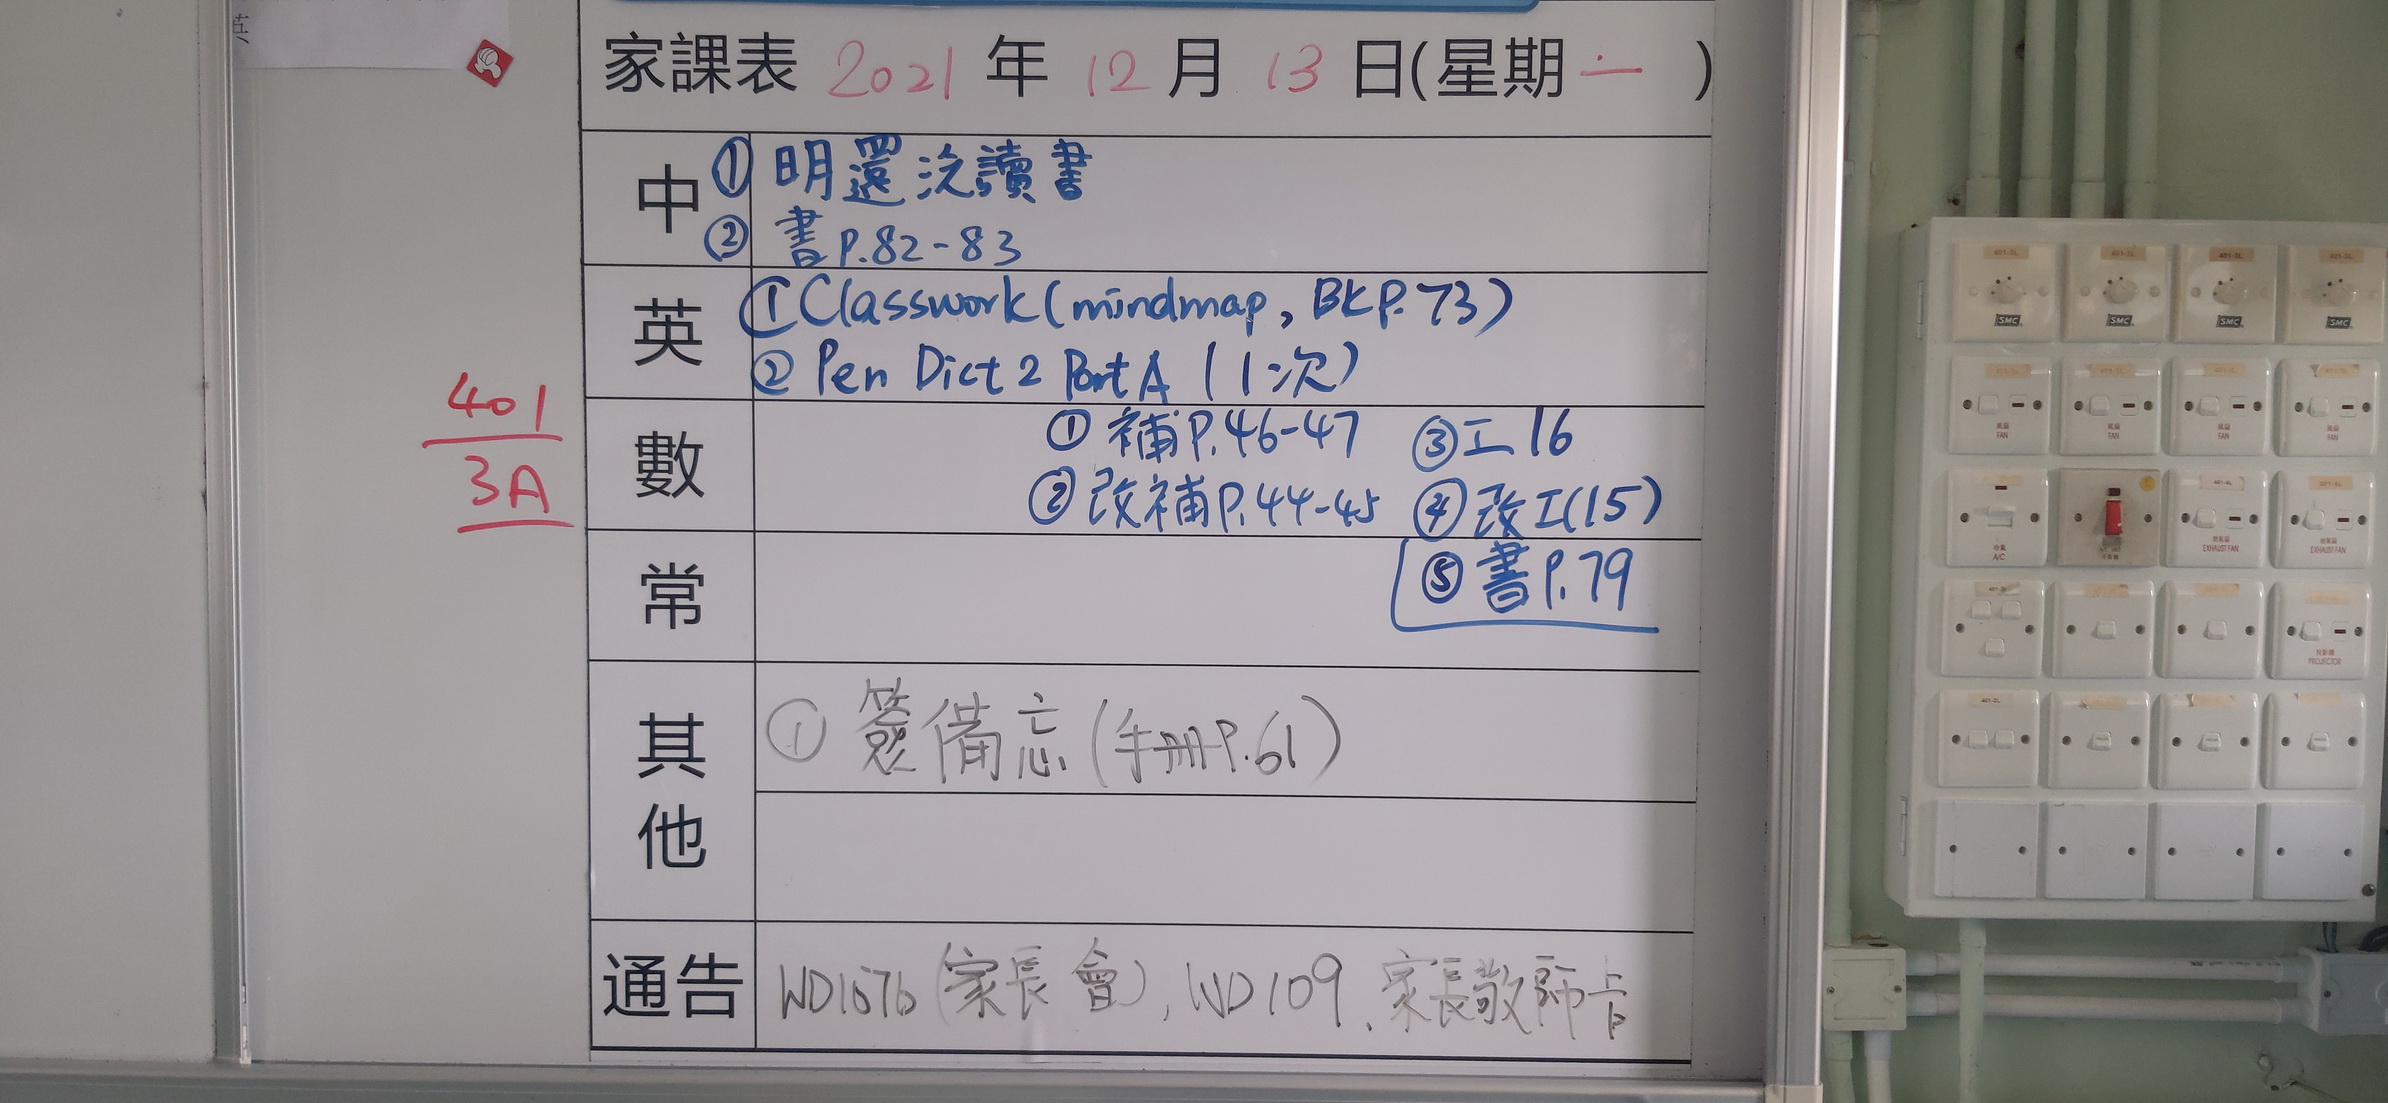 家課表 2021 年 12 月 13 日(星期一 )
中 ① 明還泛讀書
② 書P.82-83
英 ① Classwork (mindmap, BK P.73)
② Pen Dict 2 Part A (1次)
數 ① 補P.46-47 ③ 工16
② 改補P.44-45 ④ 改工(15)
⑤ 書P.79
常
401
3A
其他 ① 簽備忘(手冊P.61)
通告 (家長會), WD109, 家長敬師卡
SMC SMC SMC SMC
風扇 風扇 風扇 風扇
FAN FAN FAN FAN
冷氣
A/C
抽氣扇 抽氣扇
EXHAUST FAN EXHAUST FAN
投影機
PROJECTOR